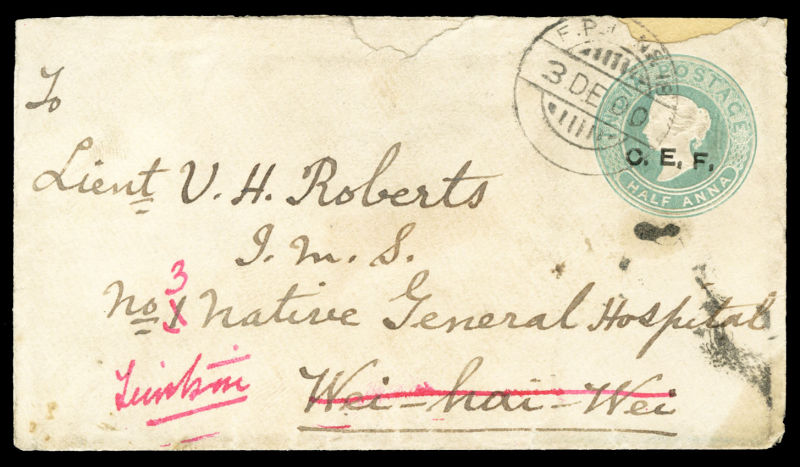 To
Lieut V. H. Roberts
I. M. S.
No 1 Native General Hospital
3
Wei-hai-Wei
3 DE 00
POSTAGE
C. E. F.
HALF ANNA